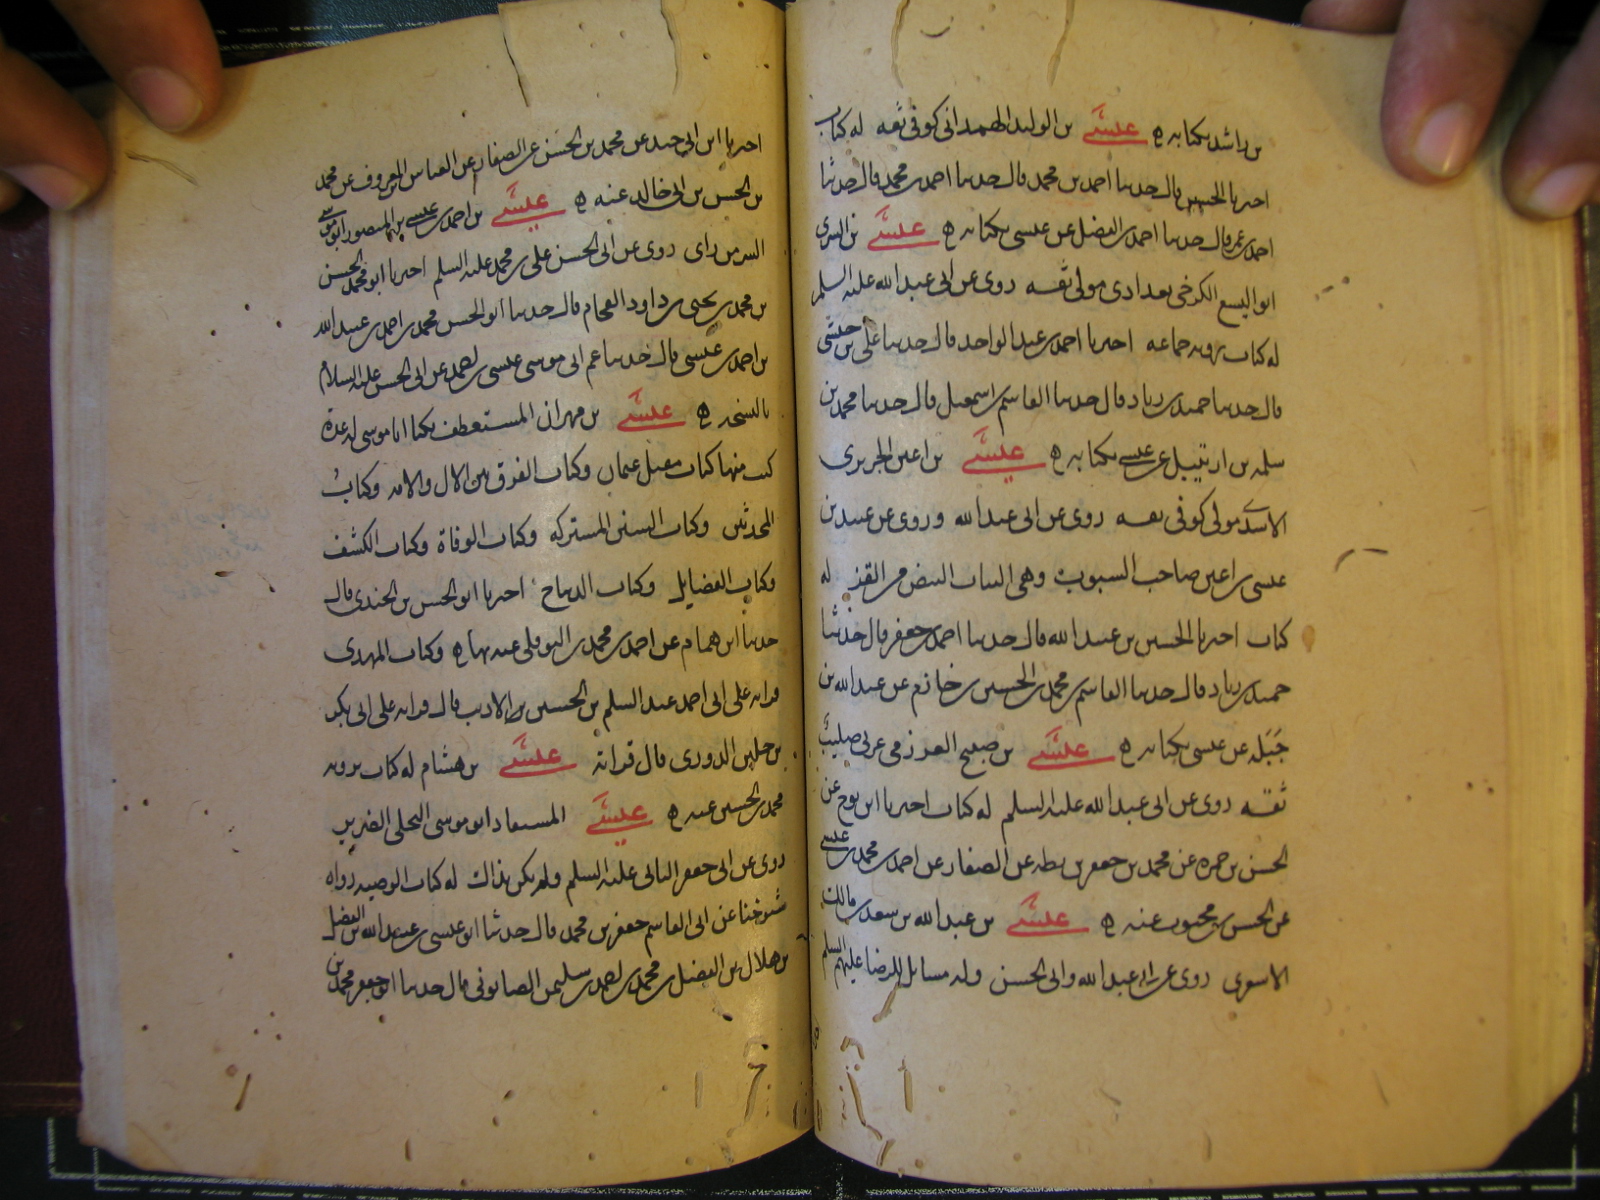 بن راشد بكتابه ه عيسى بن الوليد الهمداني كوفي ثقه له كتاب
اخبرنا الحسين قال حدثنا احمد بن محمد قال حدثنا احمد بن محمد قال حدثنا
احمد بن عمر قال حدثنا احمد بن الفضل عن عيسى بكتابه ه عيسى بن السري
ابو اليسع الكرخي بغدادى مولى ثقه روى عن ابي عبد الله عليه السلم
له كتاب يرويه جماعه اخبرنا احمد بن عبد الواحد قال حدثنا علي بن حبشي
قال حدثنا حميد بن زياد قال حدثنا القاسم بن اسمعيل قال حدثنا محمد بن
سلمه بن ارتبيل عن عيسى بكتابه ه عيسى بن اعين الجريرى
الاسدى مولى كوفي ثقه روى عن ابي عبد الله وروى عن عبيد بن
عيسى بن اعين صاحب السبوب وهي الثياب البيض من القز له
كتاب اخبرنا الحسين بن عبيد الله قال حدثنا احمد بن جعفر قال حدثنا
حميد بن زياد قال حدثنا القاسم بن محمد بن الحسين بن خازم عن عبد الله بن
جبله عن عيسى بكتابه ه عيسى بن صبيح العرزمي عربي صليب
ثقه روى عن ابي عبد الله عليه السلم له كتاب اخبرنا ابن نوح عن
الحسن بن حمزه عن محمد بن جعفر بن بطه عن الصفار عن احمد بن محمد بن عيسى
عن الحسن بن محبوب عنه ه عيسى بن عبد الله بن سعد بن مالك
الاشعرى روى عن ابي عبد الله وابي الحسن وله مسائل للرضا عليهم السلم
اخبرنا ابن ابي جيد عن محمد بن الحسن عن الصفار عن العباس المعروف عن محمد
بن الحسن بن ابي خالد عنه ه عيسى بن احمد بن عيسى بن المنصور ابو موسى
السر من راى روى عن ابي الحسن علي بن محمد عليه السلم اخبرنا ابو محمد الحسن
بن محمد بن يحيى بن داود الفحام قال حدثنا ابو الحسن محمد بن احمد بن عبيد الله
بن احمد بن عيسى قال حدثنا عم ابي موسى عيسى بن احمد عن ابي الحسن عليه السلام
بالنسخه ه عيسى بن مهران المستعطف يكنا ابا موسى له عدة
كتب منها كتاب مقتل عثمان وكتاب الفرق بين الال والامه وكتاب
المحدثين وكتاب السنن المشتركه وكتاب الوفاة وكتاب الكشف
وكتاب الفضايل وكتاب الديباج اخبرنا ابو الحسن بن الجندى قال
حدثنا ابن همام عن احمد بن محمد بن النوفلي عنه بها ه وكتاب المهدى
قراته على ابي احمد عبد السلم بن الحسين بن الاديب قال قراته على ابي بكر
بن جلين الدورى قال قراته عيسى بن هشام له كتاب يرويه
محمد بن الحسين عنه ه عيسى المستفاد ابو موسى البجلي الضرير
روى عن ابي جعفر الثاني عليه السلم ولم يكن بذاك له كتاب الوصيه رواه
شيوخنا عن ابي القاسم جعفر بن محمد قال حدثنا ابو عيسى بن عبيد الله بن الفضل
بن هلال بن الفضل بن محمد بن احمد بن سليمن الصابوني قال حدثنا ابو جعفر محمد بن